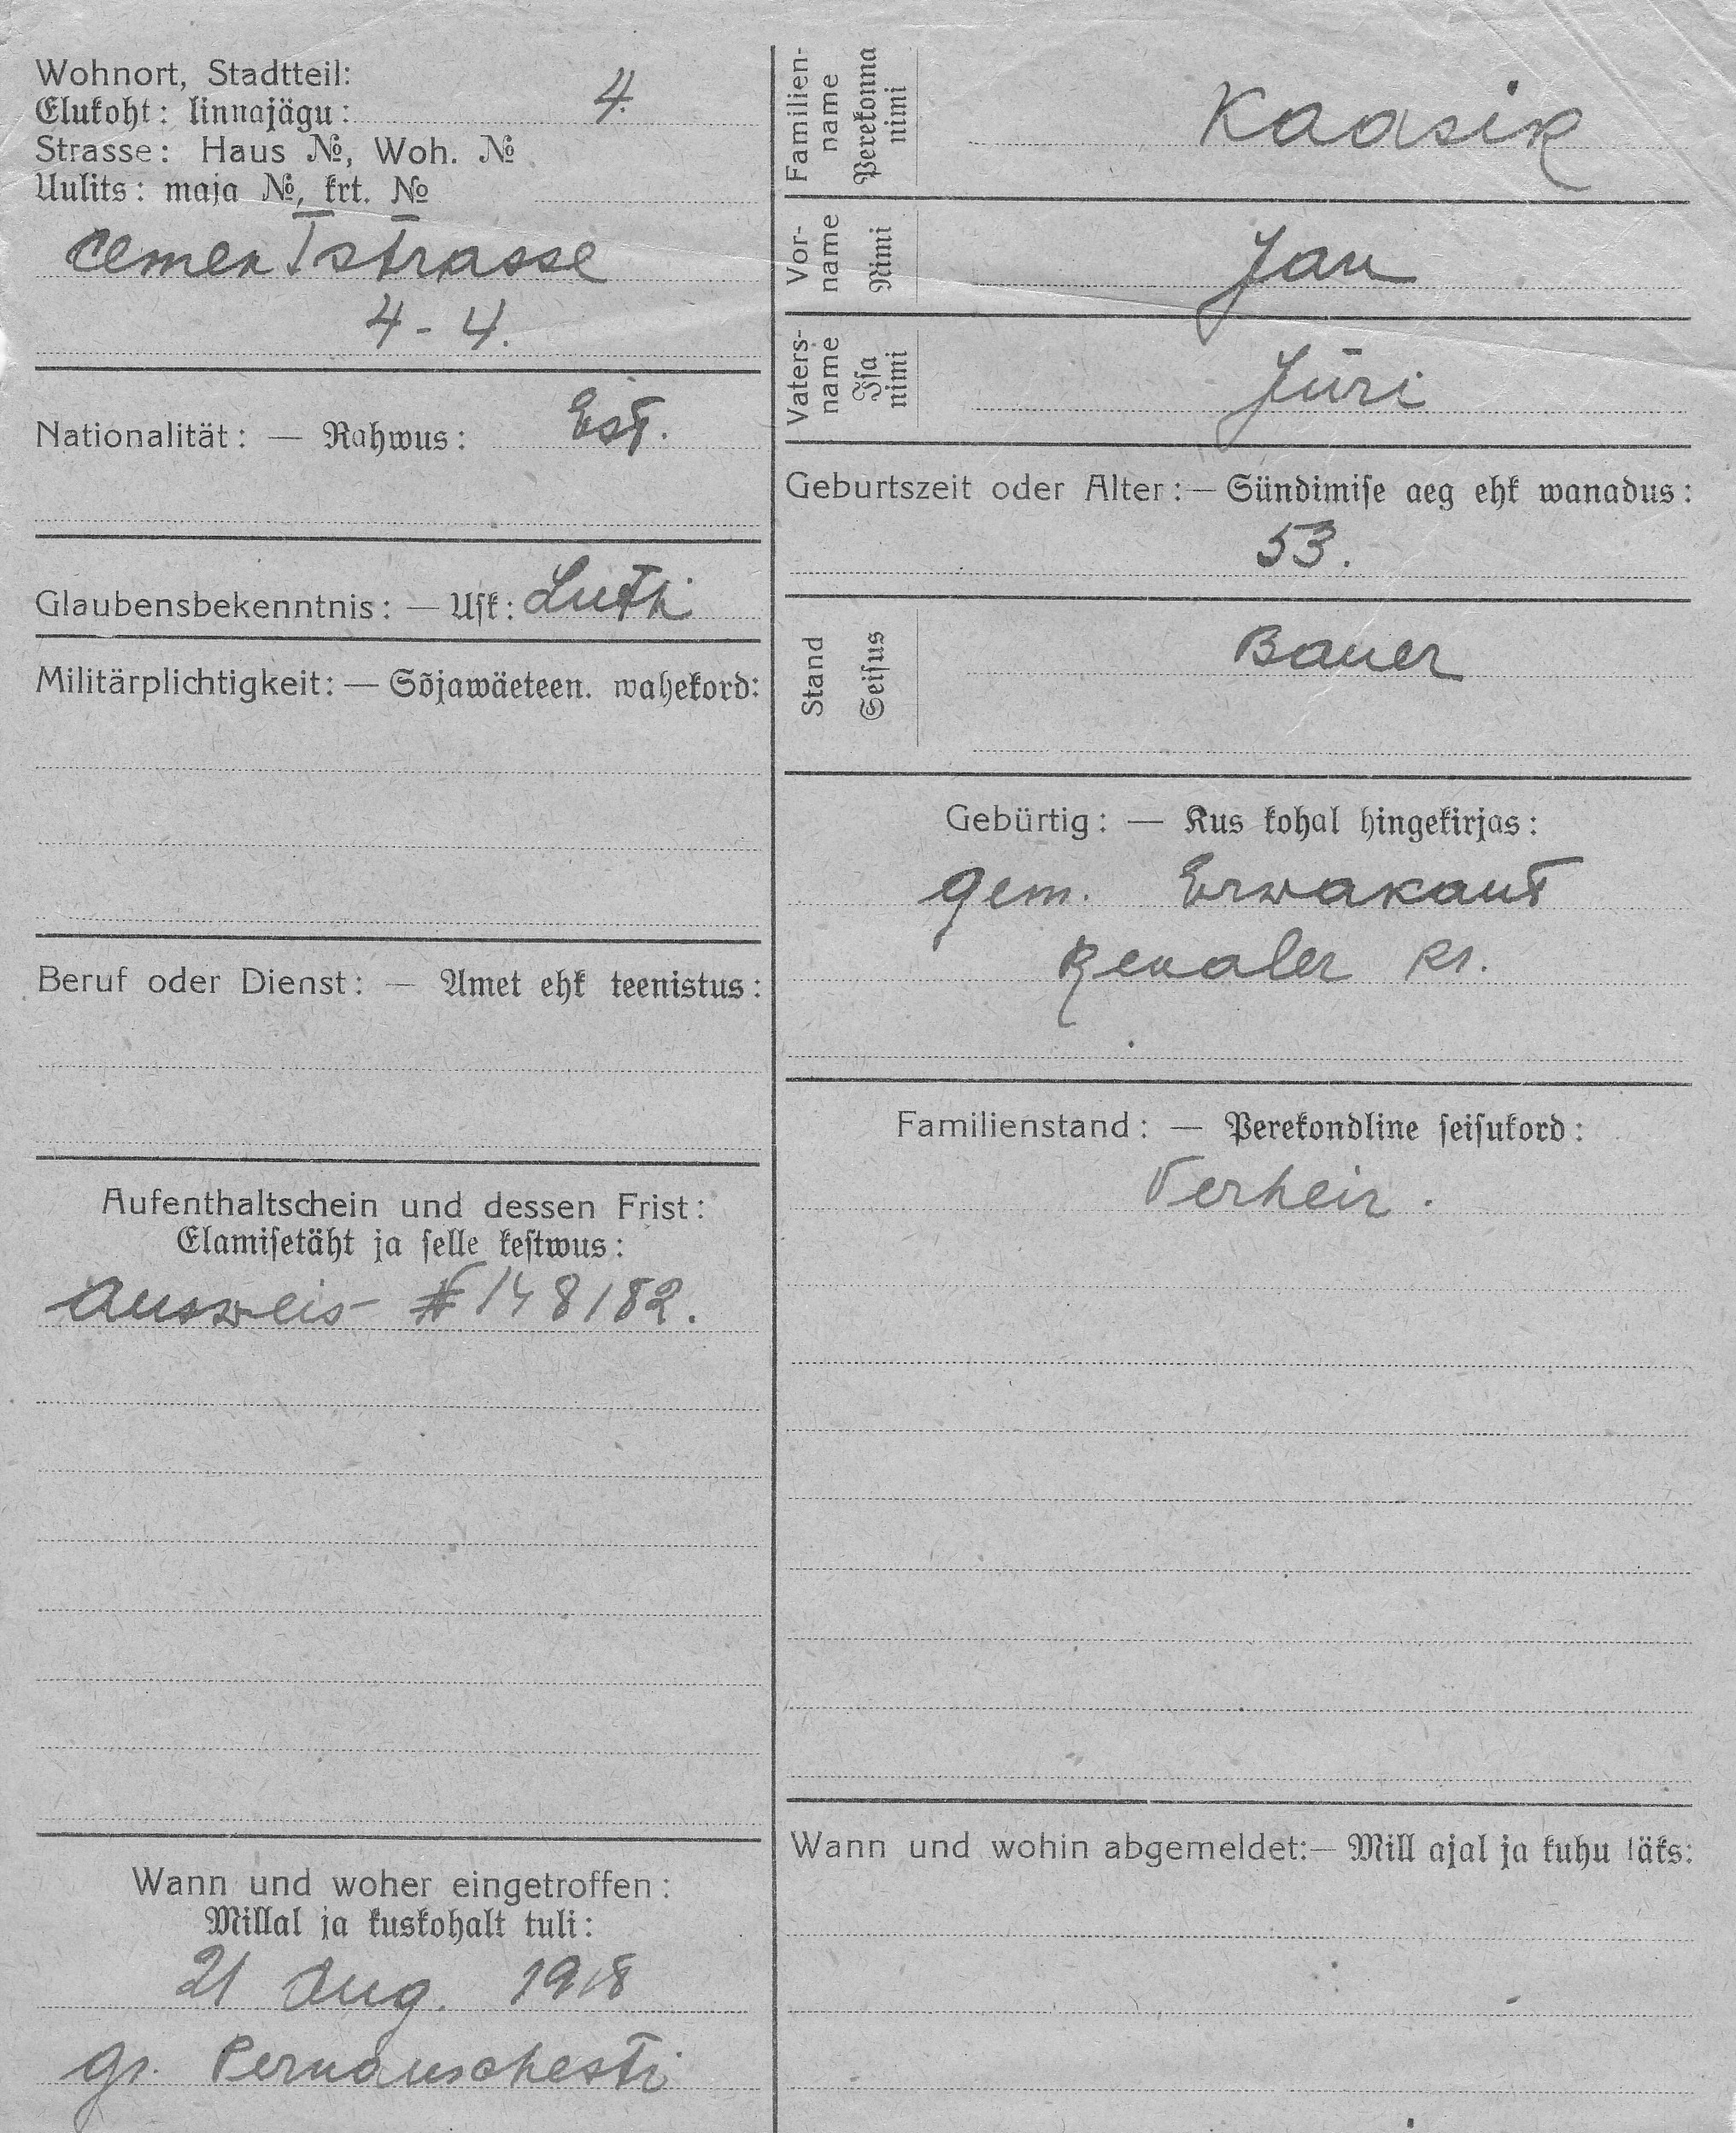 Wohnort, Stadtteil:
Elukoht: linnajägu: 4.
Strasse: Haus №, Woh. №
Uulits: maja №, krt. №
Cementstrasse
4-4.
Nationalität: — Rahwus: Est.
Glaubensbekenntnis: — Usk: Luth
Militärplichtigkeit: — Sõjawäeteen. wahekord:
Beruf oder Dienst: — Amet ehk teenistus:
Aufenthaltschein und dessen Frist:
Elamisetäht ja selle kestwus:
Ausweis # 148182.
Wann und woher eingetroffen:
Millal ja kuskohalt tuli:
21 Aug. 1918
gr.
Familien-
name
Perekonna
nimi
Kaasik
Vor-
name
Nimi
Jan
Vaters-
name
Isa
nimi
Jüri
Geburtszeit oder Alter: — Sündimise aeg ehk wanadus:
53.
Stand
Seisus
Bauer
Gebürtig: — Kus kohal hingekirjas:
gem. Erwakant
Revaler Kr.
Familienstand: — Perekondline seisukord:
Verheir.
Wann und wohin abgemeldet: — Mill ajal ja kuhu läks: